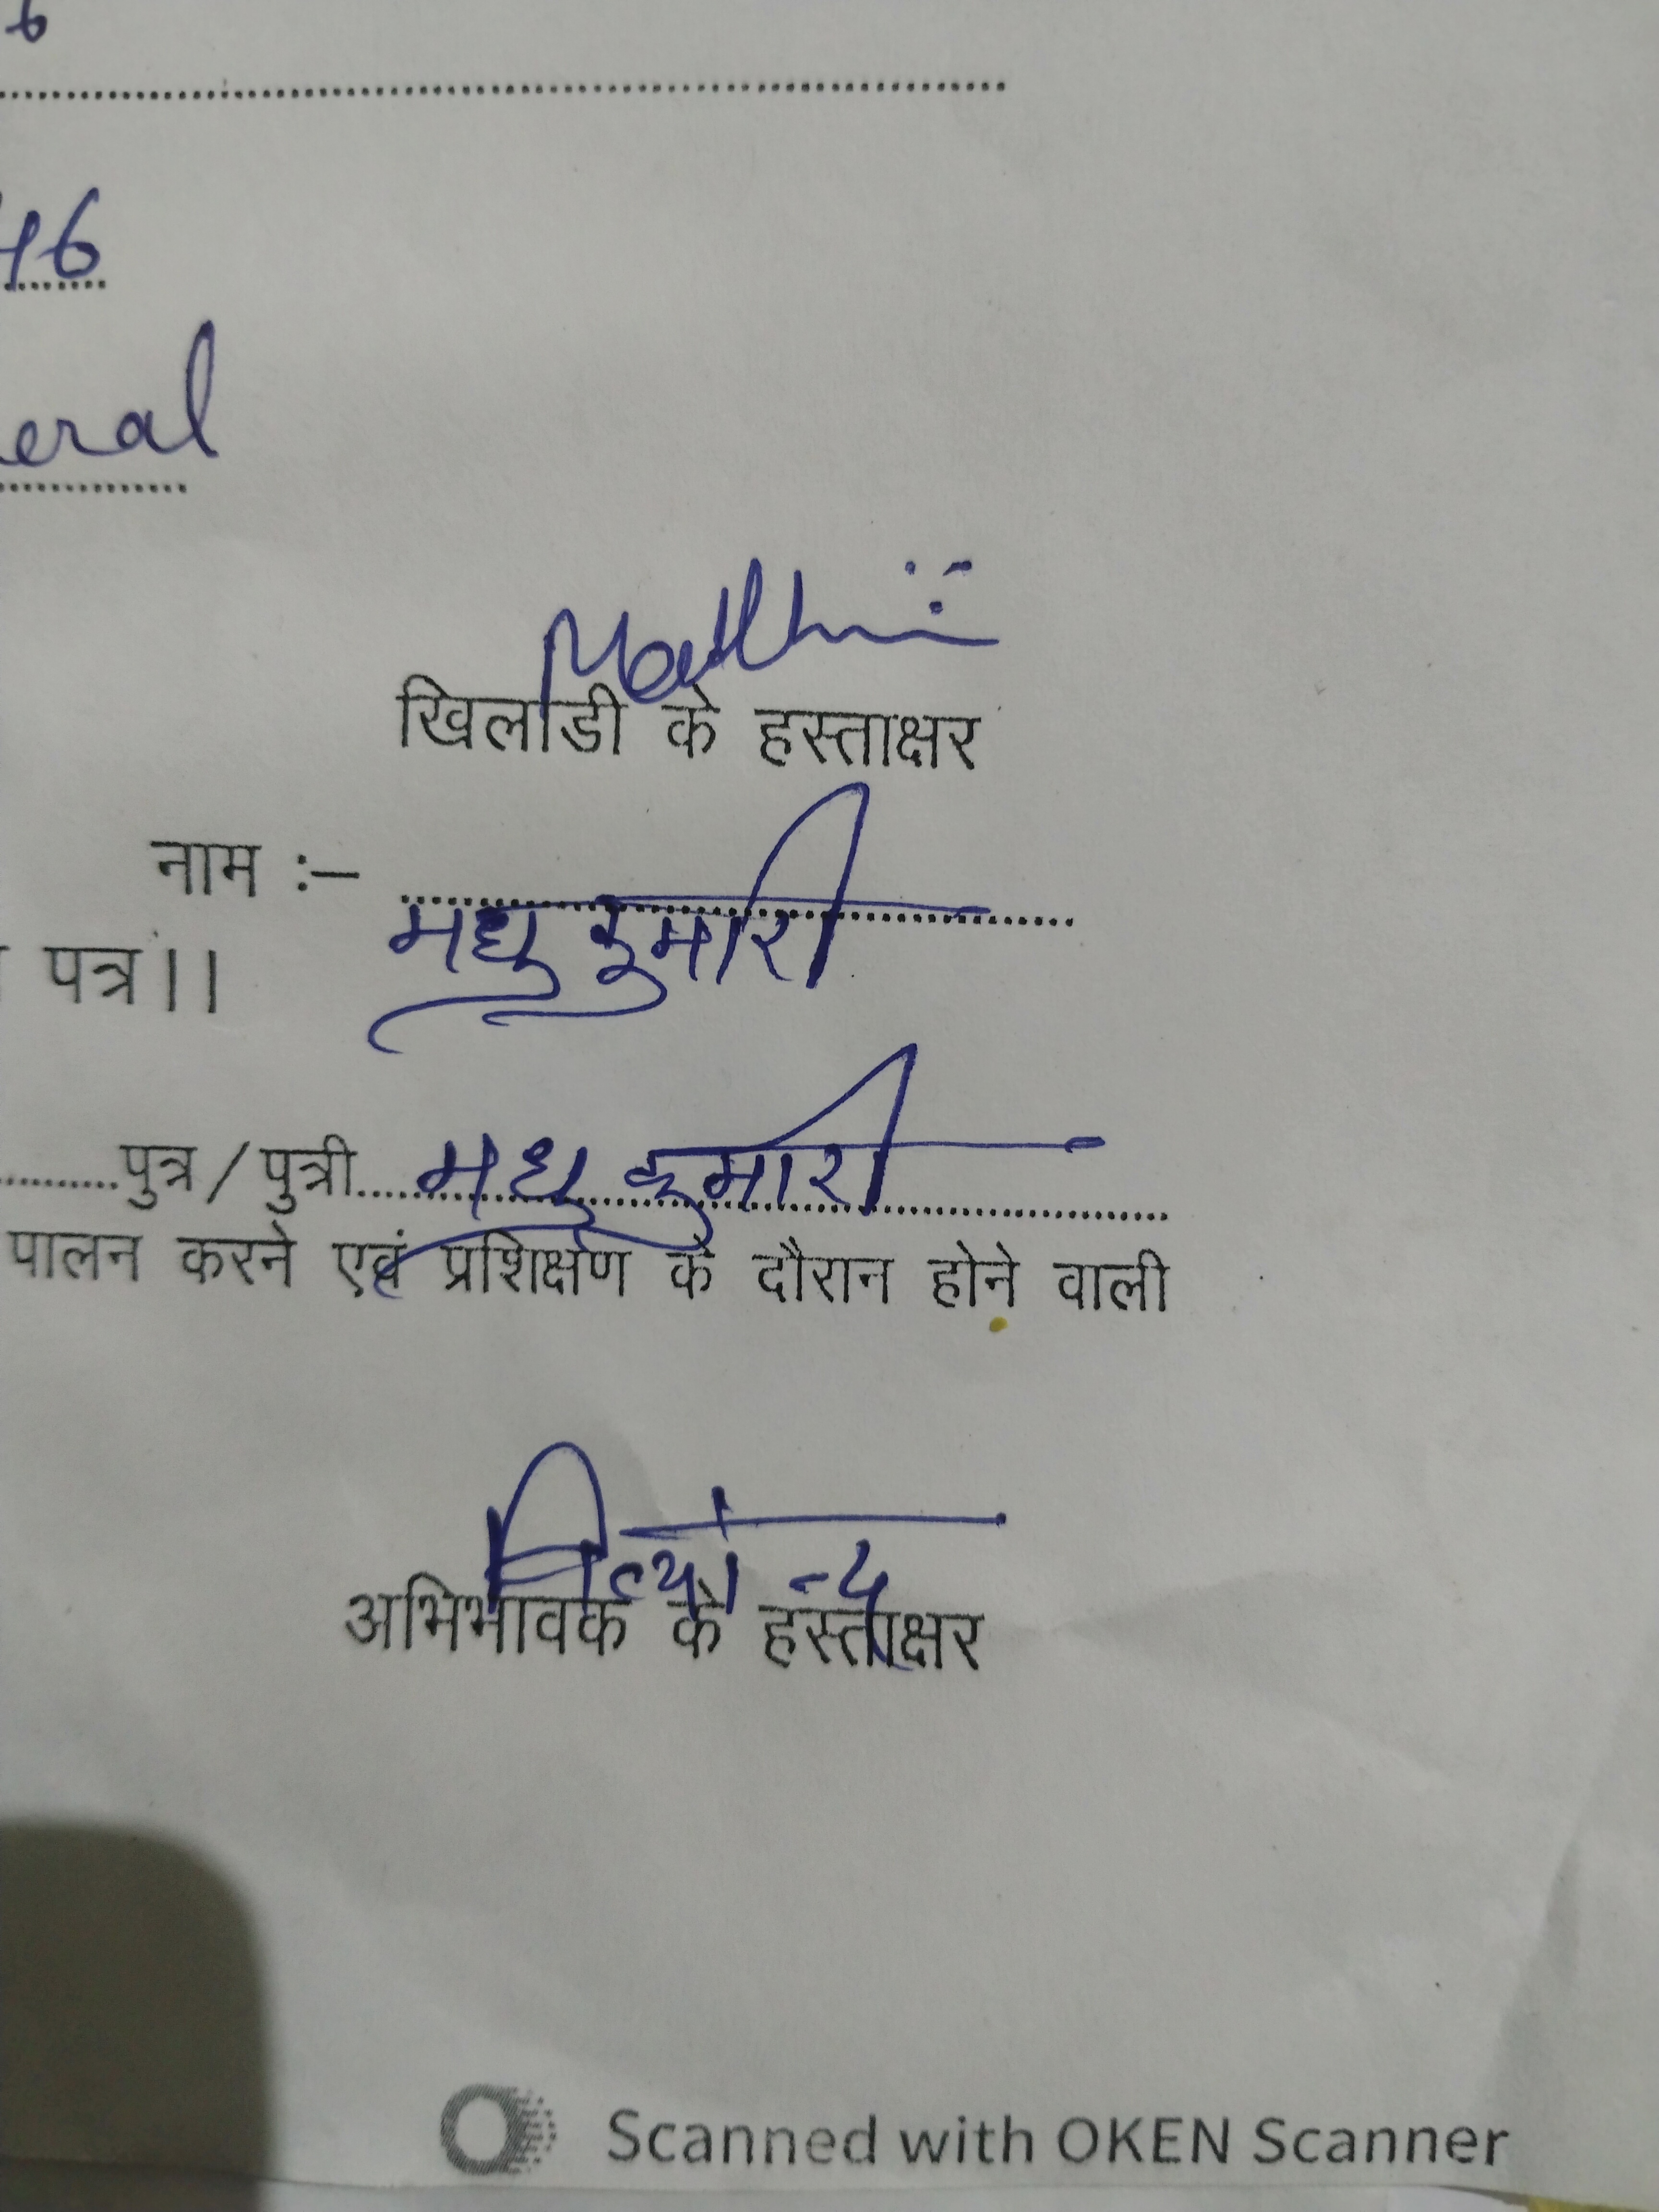 6
46
eral
Madhu
खिलाडी के हस्ताक्षर
नाम :–
मधु कुमारी
पत्र।।
पुत्र/पुत्री मधु कुमारी
पालन करने एवं प्रशिक्षण के दौरान होने वाली
अभिभावक के हस्ताक्षर
Scanned with OKEN Scanner